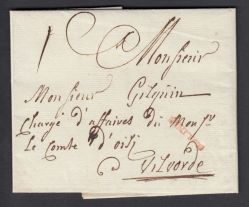 1
A
Monsieur
Monsieur Gilquin
Chargé d'affaires du Monsr
le Comte d'
Vilvorde